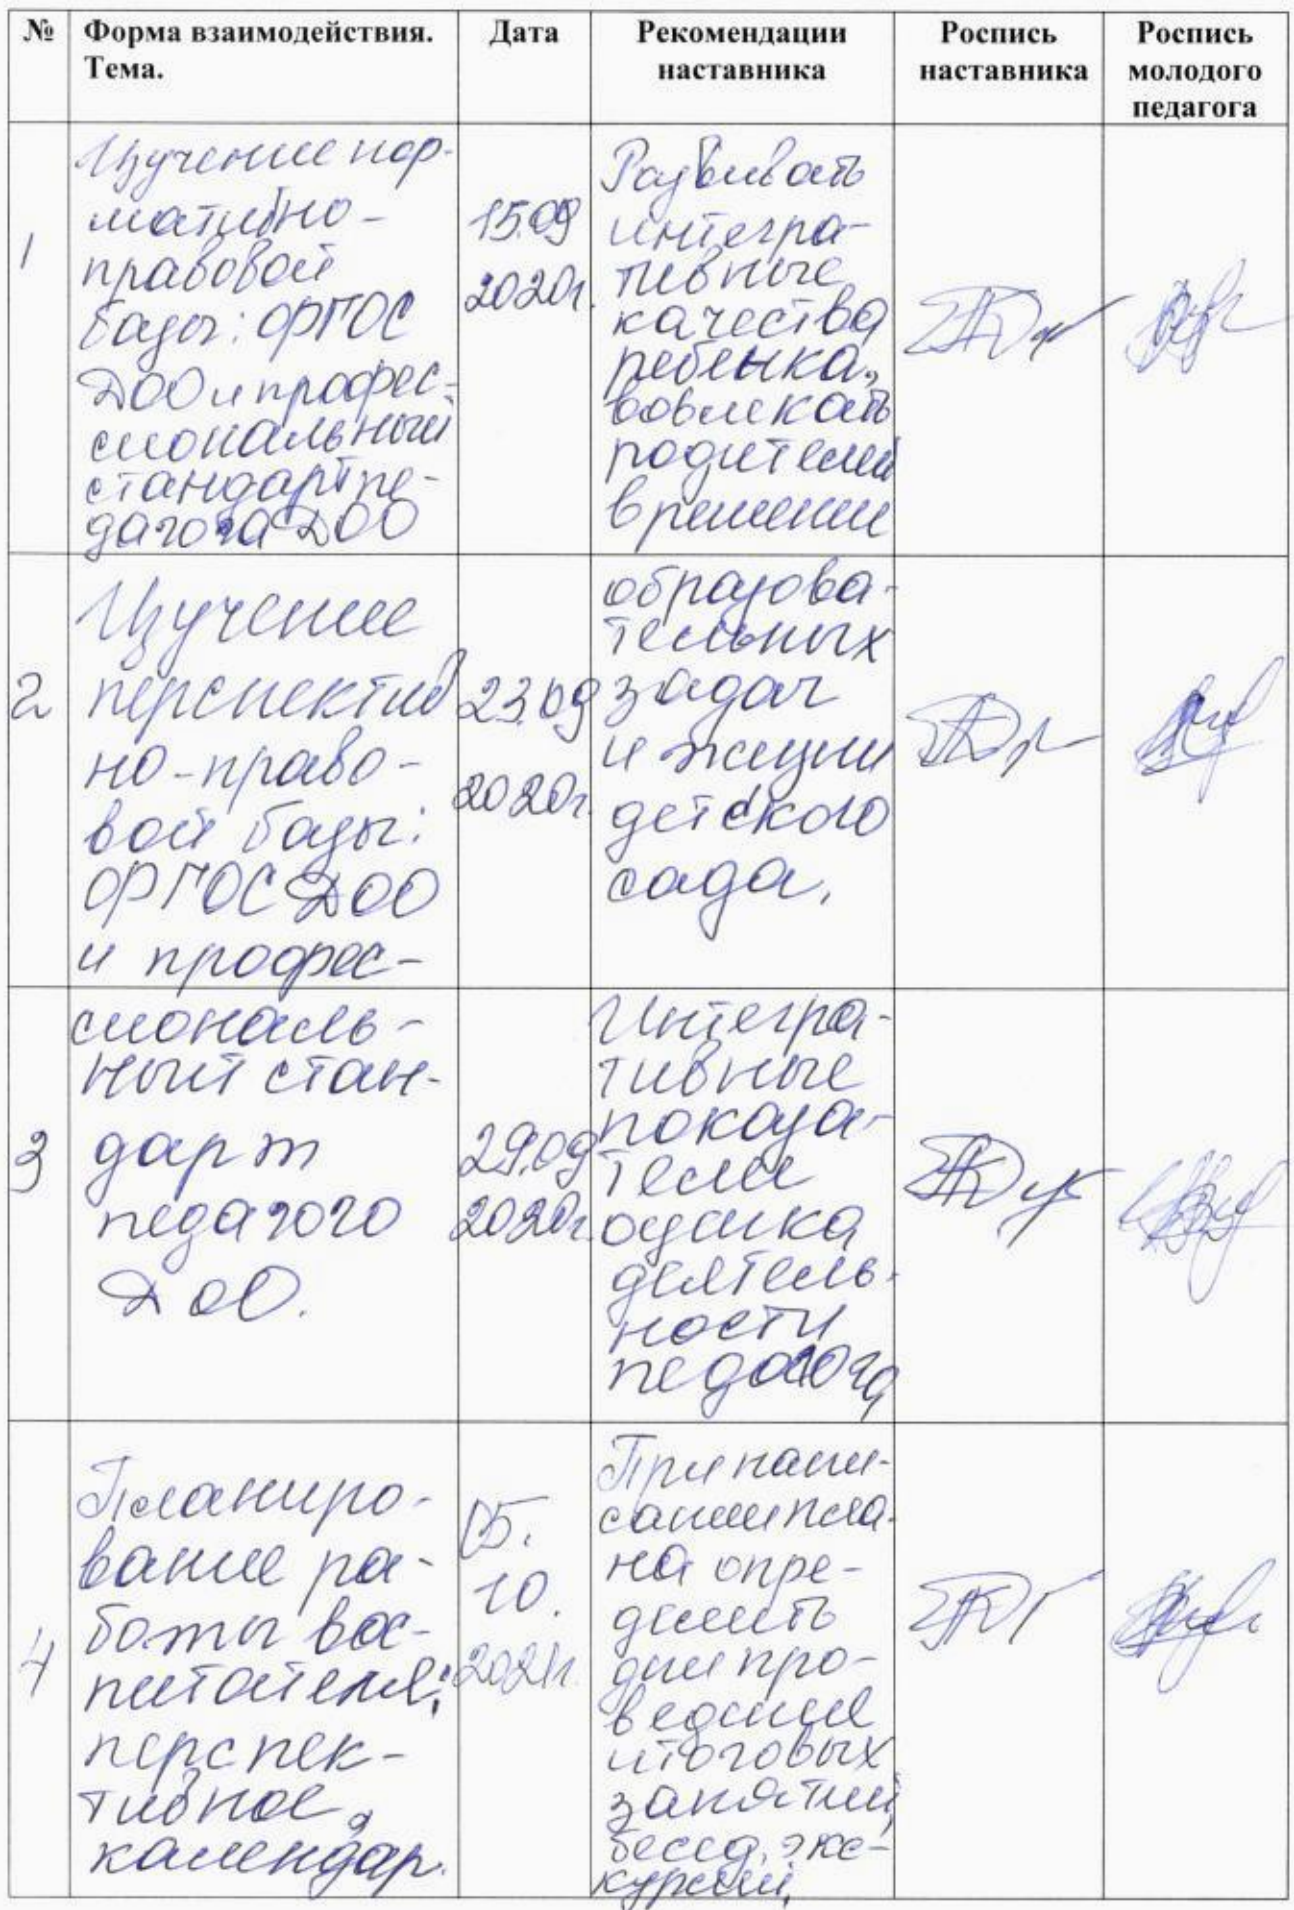 №
Форма взаимодействия.
Тема.
Дата
Рекомендации
наставника
Роспись
наставника
Роспись
молодого
педагога
1
Изучение нор-
мативно-
правовой
базы: ФГОС
ДОО и профес-
сиональный
стандарт пе-
дагога ДОО
15.09
2020г.
Развивать
интегра-
тивные
качества
ребенка,
вовлекать
родителей
в решении
2
Изучение
перспектив
но-право-
вой базы:
ФГОС ДОО
и профес-
23.09
2020г.
образова-
тельных
задач
и жизни
детского
сада.
3
сиональ-
ный стан-
дарт
педагога
ДОО.
29.09
2020г.
Интегра-
тивные
показа-
тели
оценка
деятель-
ности
педагога
4
Планиро-
вание ра-
боты вос-
питателя:
перспек-
тивное,
календар.
05.
10.
2021г.
При напи-
сании пла-
на опре-
делить
дни про-
ведение
итоговых
занятий,
бесед, экс-
курсий,